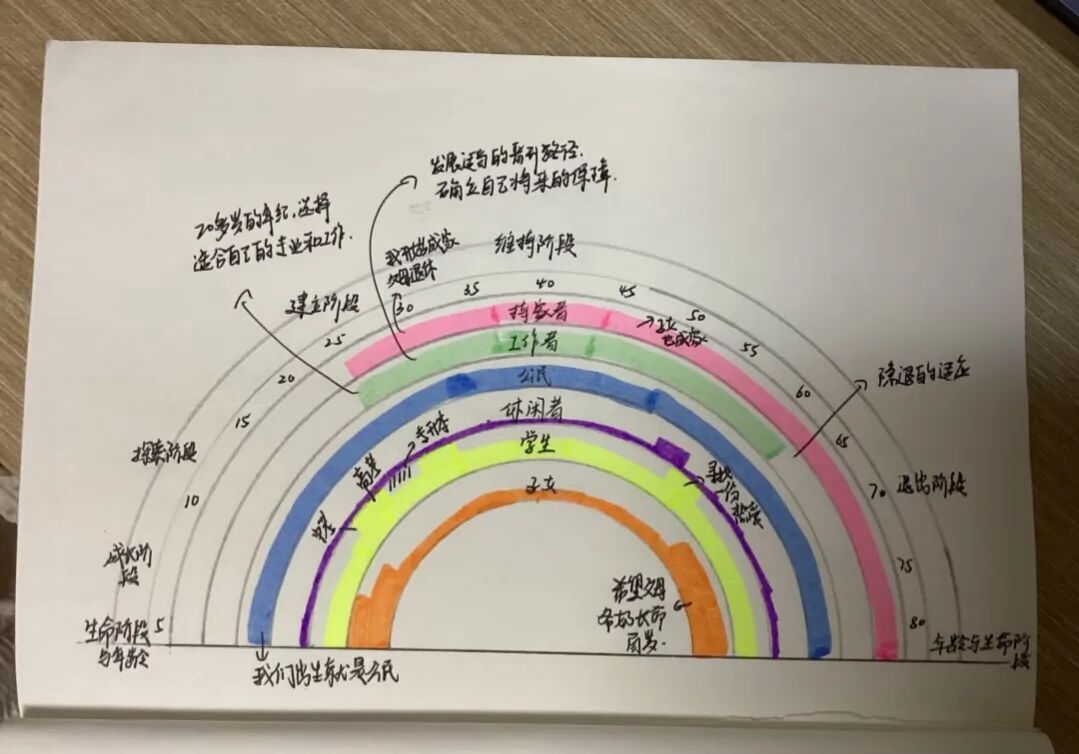 发展适当的晋升路径.
确立自己将来的保障.
20多岁的年纪,选择
适合自己的专业和工作.
我开始成家
父母退休
维持阶段
建立阶段
30
35
40
45
50
25
55
20
60
15
65
10
70
75
5
80
持家者
子女
也成家
工作者
公民
休闲者
学生
子女
隐退的适应
探索阶段
退出阶段
成长阶
段
高考
专升本
中考
寻找
一份
热爱
希望父母
长命
百岁.
生命阶段
与年龄
年龄与生命阶
段
我们出生就是公民